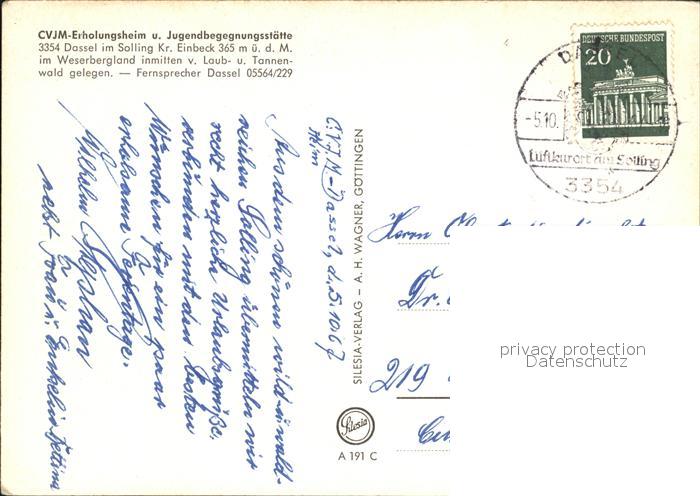 CVJM-Erholungsheim u. Jugendbegegnungsstätte
3354 Dassel im Solling Kr. Einbeck 365 m ü. d. M.
im Weserbergland inmitten v. Laub- u. Tannen-
wald gelegen. — Fernsprecher Dassel 05564/229
DEUTSCHE BUNDESPOST
20
-5.10.
Luftkurort am Solling
3354
C.V.J.M-Dassel, d. 5.10.67
Aus dem schönen wild- u. wald-
reichen Solling übermitteln wir
recht herzliche Urlaubsgrüße,
verbunden mit den besten
Wünschen für ein paar
erholsame Ferientage.
Wilhelm
nebst Frau u. Enkelin Bettina
SILESIA-VERLAG – A. H. WAGNER, GÖTTINGEN
Silesia
A 191 C
Herrn
Dr.
219
privacy protection
Datenschutz